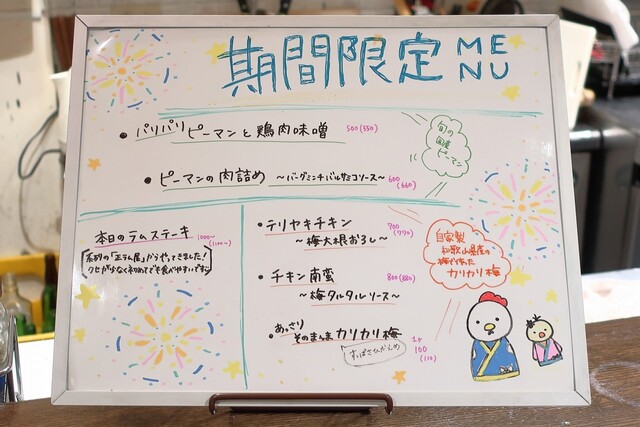 期間限定 MENU
パリパリピーマンと鶏肉味噌 500(550)
ピーマンの肉詰め 〜バーグミンチバルサミコソース〜 600(660)
旬の
国産
ピーマン
本日のラムステーキ 1000〜(1100〜)
クセが少なく初めてでも食べやすいです
テリヤキチキン 700(770)
〜梅大根おろし〜
チキン南蛮 800(880)
〜梅タルタルソース〜
あっさり
そのまんまカリカリ梅 1ヶ 100(110)
すっぱさひかえめ
自家製
和歌山県産の
梅で作った
カリカリ梅